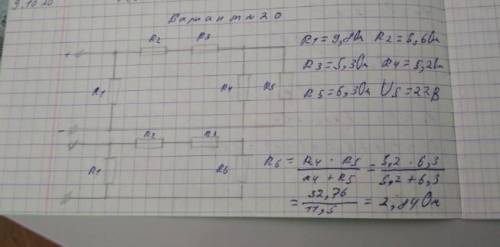 9.10.20
Вариант 20
R2 R3
+
R1 R4 R5
-
R2 R3
R1 R6
R1 = 9,8 Ом R2 = 6,6 Ом
R3 = 5,3 Ом R4 = 5,2 Ом
R5 = 6,3 Ом U5 = 22 В
R6 = R4 · R5 / R4 + R5 = 5,2 · 6,3 / 5,2 + 6,3
= 32,76 / 11,5 = 2,84 Ом